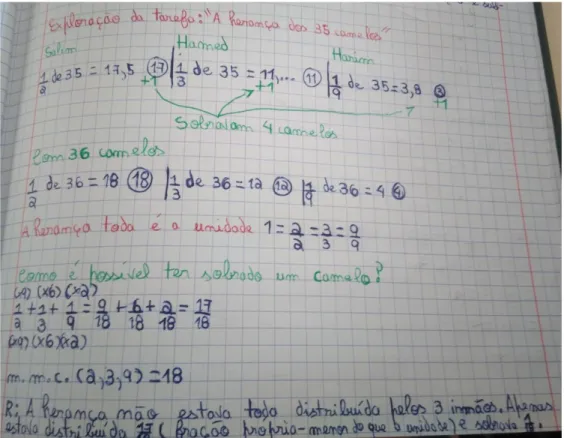 Exploração da tarefa: "A herança dos 35 camelos"
Salim Hamed Harim
1/2 de 35 = 17,5 (17) | 1/3 de 35 = 11,... (11) | 1/9 de 35 = 3,8 (3)
+1 +1 +1
Sobravam 4 camelos
Com 36 camelos
1/2 de 36 = 18 (18) | 1/3 de 36 = 12 (12) | 1/9 de 36 = 4 (4)
A herança toda é a unidade 1 = 2/2 = 3/3 = 9/9
Como é possível ter sobrado um camelo?
(x9) (x6) (x2)
1/2 + 1/3 + 1/9 = 9/18 + 6/18 + 2/18 = 17/18
(x9) (x6) (x2)
m.m.c. (2,3,9) = 18
R: A herança não estava toda distribuída pelos 3 irmãos. Apenas
estava distribuída 17/18 (fração própria - menor do que a unidade) e sobrava